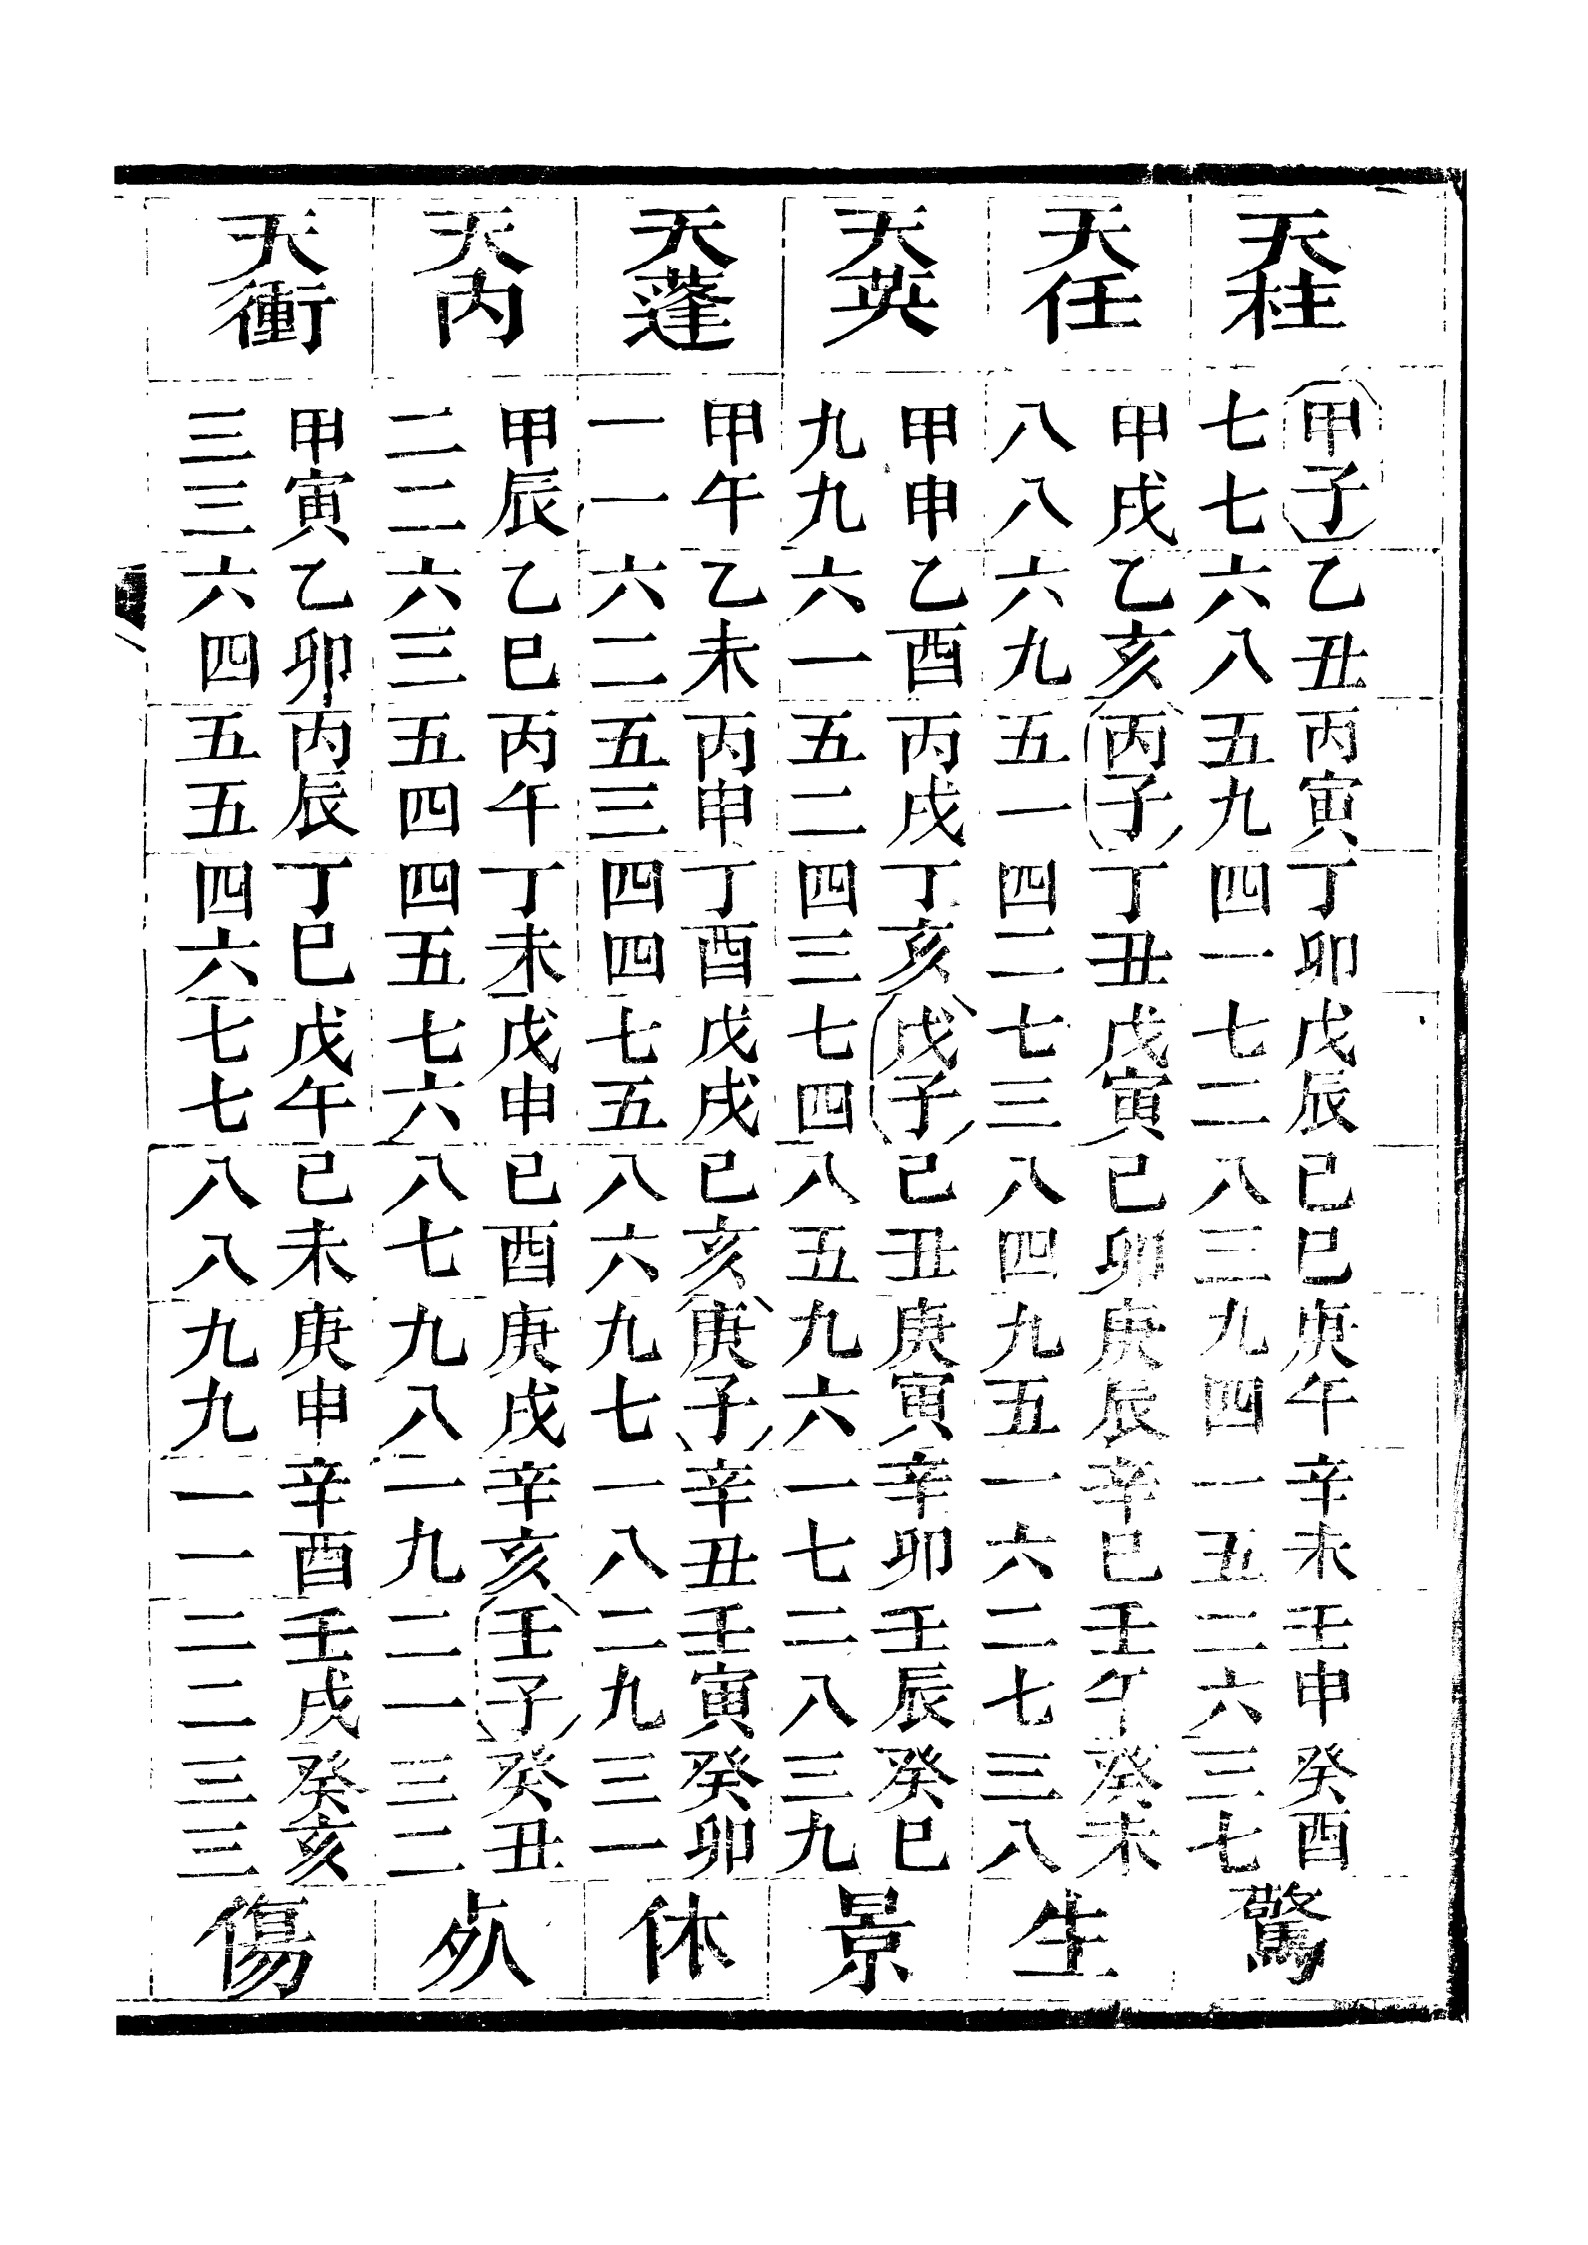 天柱
甲子乙丑丙寅丁卯戊辰己巳庚午辛未壬申癸酉
七七六八五九四一七二八三九四一五二六三七
驚
天任
甲戌乙亥丙子丁丑戊寅己卯庚辰辛巳壬午癸未
八八六九五一四二七三八四九五一六二七三八
生
天英
甲申乙酉丙戌丁亥戊子己丑庚寅辛卯壬辰癸巳
九九六一五二四三七四八五九六一七二八三九
景
天蓬
甲午乙未丙申丁酉戊戌己亥庚子辛丑壬寅癸卯
一一六二五三四四七五八六九七一八二九三一
休
天内
甲辰乙巳丙午丁未戊申己酉庚戌辛亥壬子癸丑
二二六三五四四五七六八七九八一九二一三二
死
天衝
甲寅乙卯丙辰丁巳戊午己未庚申辛酉壬戌癸亥
三三六四五五四六七七八八九九一一二二三三
傷